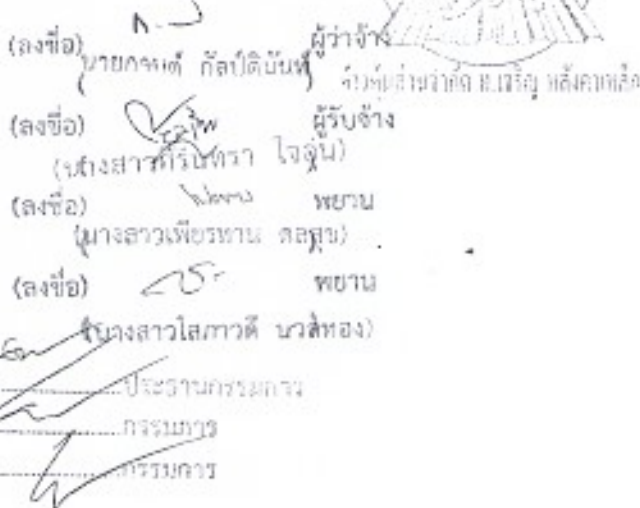 (ลงชื่อ) ผู้ว่าจ้าง
(นายกานต์ กัลป์ตินันท์)
ห้างหุ้นส่วนจำกัด พ.เจริญ หลังคาเหล็ก
(ลงชื่อ) ผู้รับจ้าง
(นางสาวศิรินทรา ใจอุ่น)
(ลงชื่อ) พยาน
(นางสาวเพียรทาน ดลสุข)
(ลงชื่อ) พยาน
(นางสาวโสภาวดี นวลทอง)
ประธานกรรมการ
กรรมการ
กรรมการ